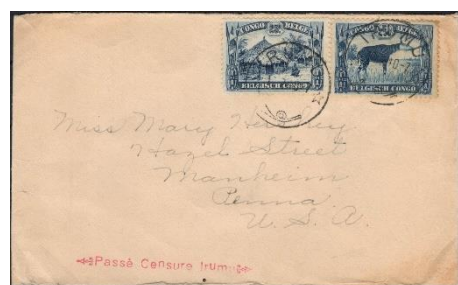 CONGO BELGE
BELGISCH CONGO
CONGO BELGE
BELGISCH CONGO
Miss Mary
Hazel Street
Manheim
Penna
U.S.A.
Passé Censure Irumu